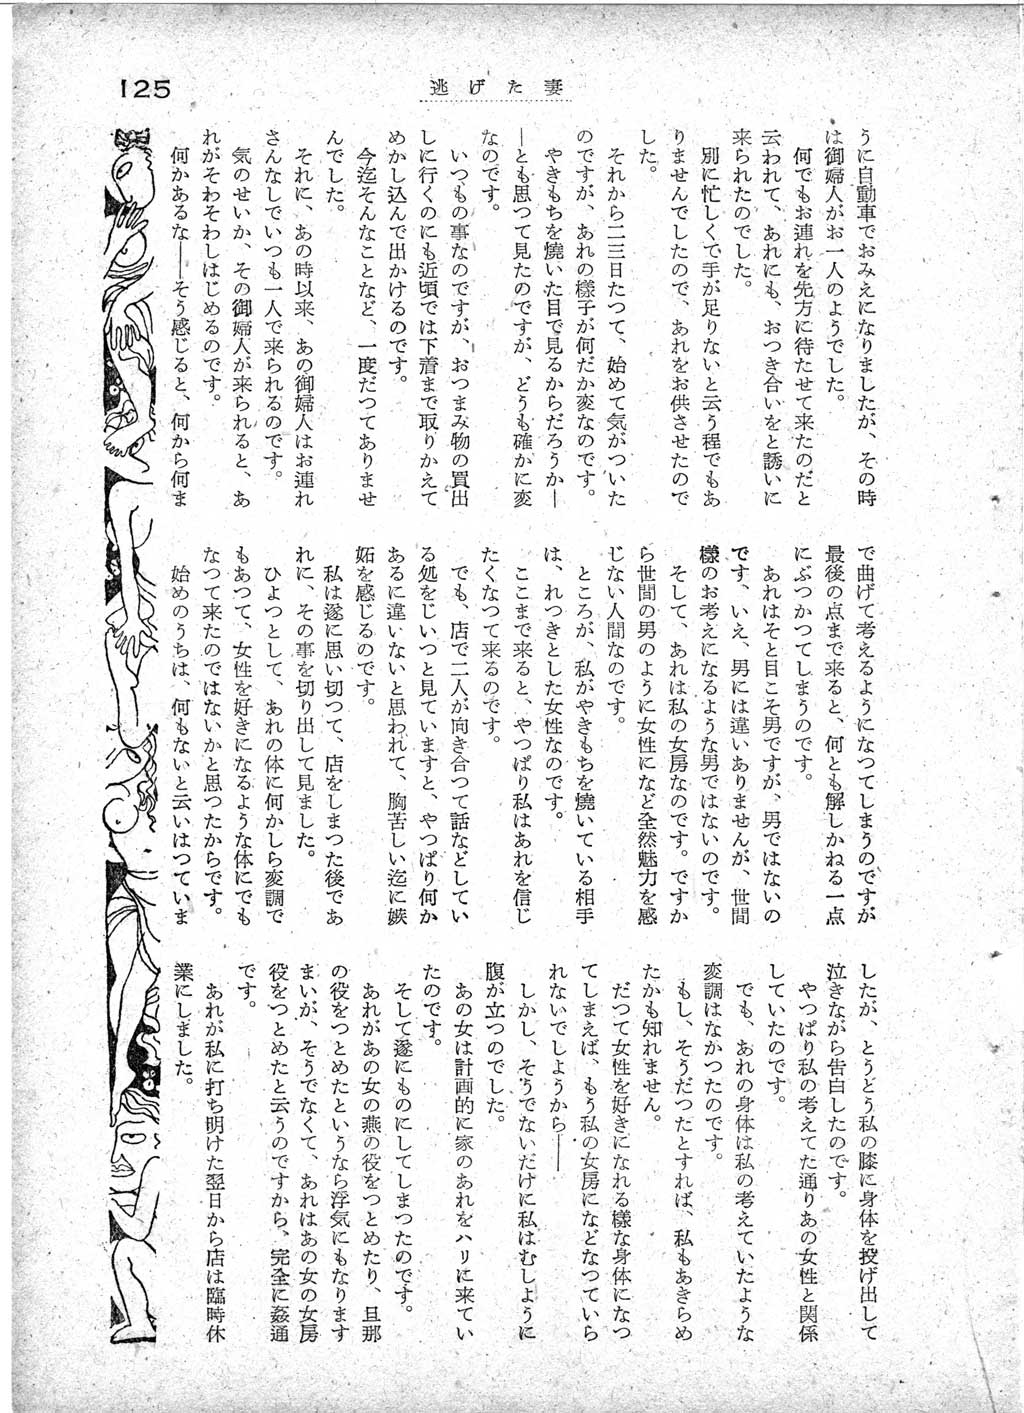 125
逃げた妻
うに自動車でおみえになりましたが、その時
は御婦人がお一人のようでした。
何でもお連れを先方に待たせて来たのだと
云われて、あれにも、おつき合いをと誘いに
来られたのでした。
別に忙しくで手が足りないと云う程でもあ
りませんでしたので、あれをお供させたので
した。
それから二三日たつて、始めて気がついた
のですが、あれの様子が何だか変なのです。
やきもちを燒いた目で見るからだろうか―
―とも思つて見たのですが、どうも確かに変
なのです。
いつもの事なのですが、おつまみ物の買出
しに行くのにも近頃では下着まで取りかえて
めかし込んで出かけるのです。
今迄そんなことなど、一度だつてありませ
んでした。
それに、あの時以来、あの御婦人はお連れ
さんなしでいつも一人で来られるのです。
気のせいか、その御婦人が来られると、あ
れがそわそわしはじめるのです。
何かあるな――そう感じると、何から何ま
で曲げて考えるようになつてしまうのですが
最後の点まで来ると、何とも解しかねる一点
にぶつかつてしまうのです。
あれはそと目こそ男ですが、男ではないの
です、いえ、男には違いありませんが、世間
様のお考えになるような男ではないのです。
そして、あれは私の女房なのです。ですか
ら世間の男のように女性になど全然魅力を感
じない人間なのです。
ところが、私がやきもちを燒いている相手
は、れつきとした女性なのです。
ここまで来ると、やつぱり私はあれを信じ
たくなつて来るのです。
でも、店で二人が向き合つて話などしてい
る処をじいつと見ていますと、やつぱり何か
あるに違いないと思われて、胸苦しい迄に嫉
妬を感じるのです。
私は遂に思い切つて、店をしまつた後であ
れに、その事を切り出して見ました。
ひよつとして、あれの体に何かしら変調で
もあつて、女性を好きになるような体にでも
なつて来たのではないかと思つたからです。
始めのうちは、何もないと云いはつていま
したが、とうどう私の膝に身体を投げ出して
泣きながら告白したのです。
やつぱり私の考えてた通りあの女性と関係
していたのです。
でも、あれの身体は私の考えていたような
変調はなかつたのです。
もし、そうだつたとすれば、私もあきらめ
たかも知れません。
だつて女性を好きになれる様な身体になつ
てしまえば、もう私の女房になどなつていら
れないでしようから――
しかし、そうでないだけに私はむしように
腹が立つのでした。
あの女は計画的に家のあれをハリに来てい
たのです。
そして遂にものにしてしまつたのです。
あれがあの女の燕の役をつとめたり、旦那
の役をつとめたというなら浮気にもなります
まいが、そうでなくて、あれはあの女の女房
役をつとめたと云うのですから、完全に姦通
です。
あれが私に打ち明けた翌日から店は臨時休
業にしました。